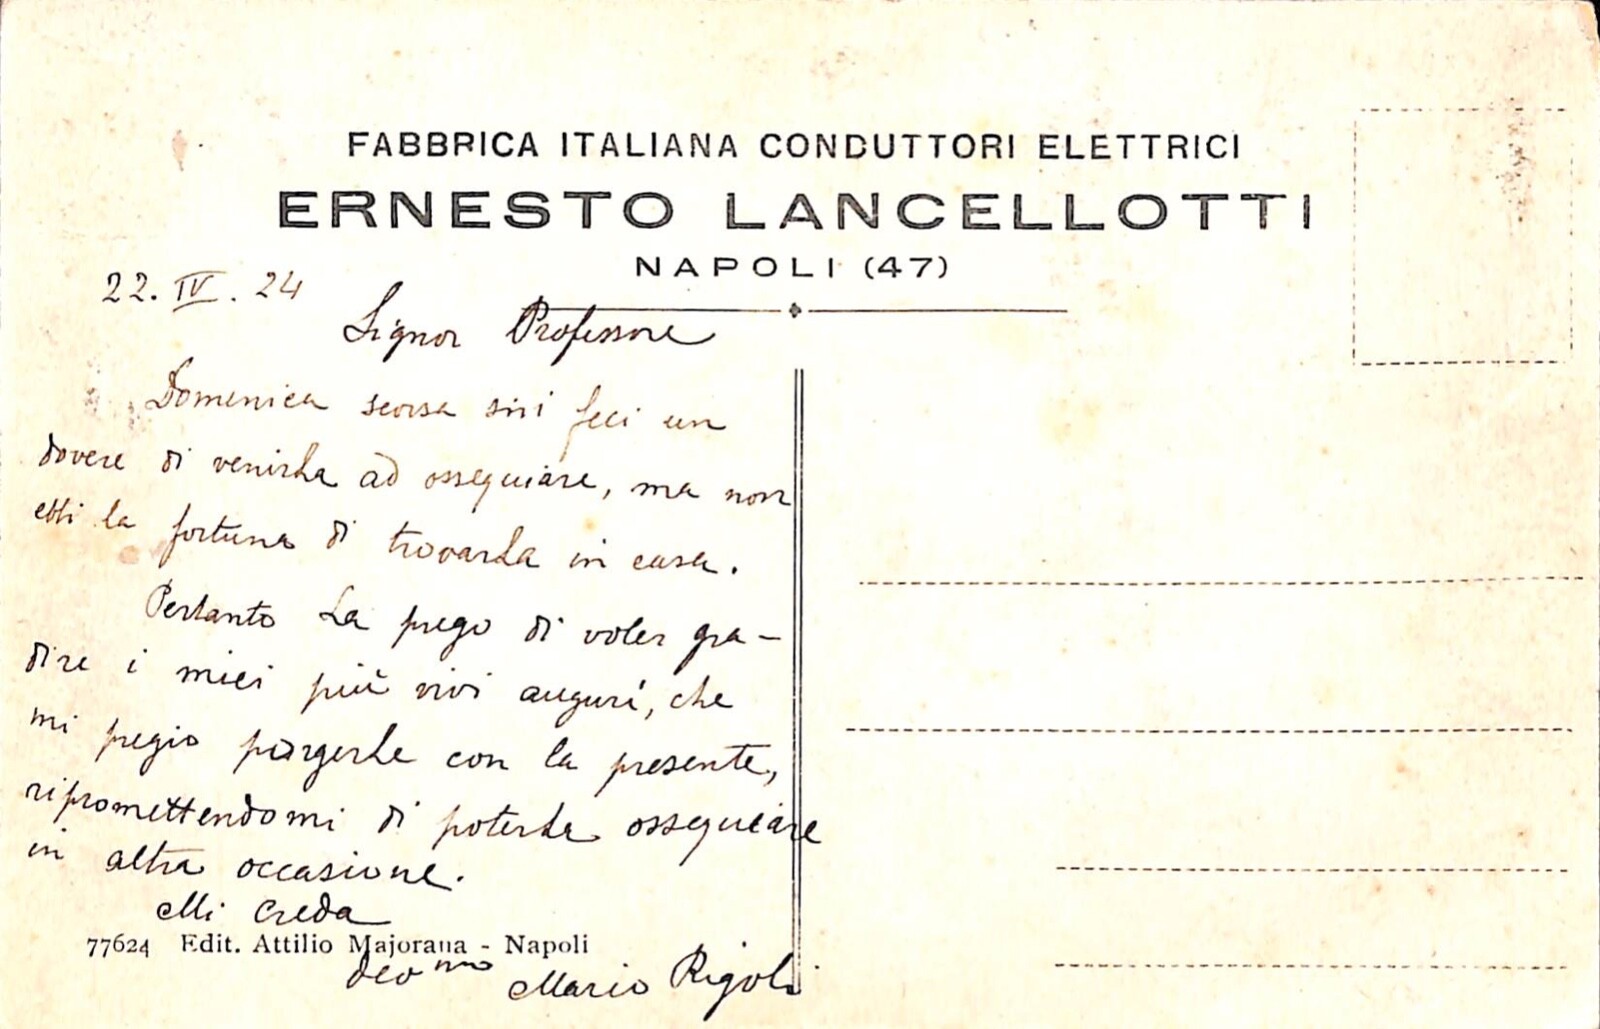 FABBRICA ITALIANA CONDUTTORI ELETTRICI
ERNESTO LANCELLOTTI
NAPOLI (47)
22. IV. 24
Signor Professore
Domenica scorsa feci un
dovere di venirLa ad ossequiare, ma non
ebbi la fortuna di trovarLa in casa.
Pertanto La prego di voler gra-
dire i miei più vivi auguri, che
mi pregio porgerLe con la presente,
ripromettendomi di poterLa ossequiare
in altra occasione.
Mi creda
77624 Edit. Attilio Majorana - Napoli
Mario Rigoli